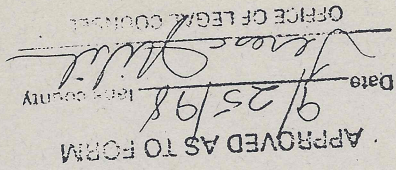 APPROVED AS TO FORM
Date 9/25/98 lane county
OFFICE OF LEGAL COUNSEL